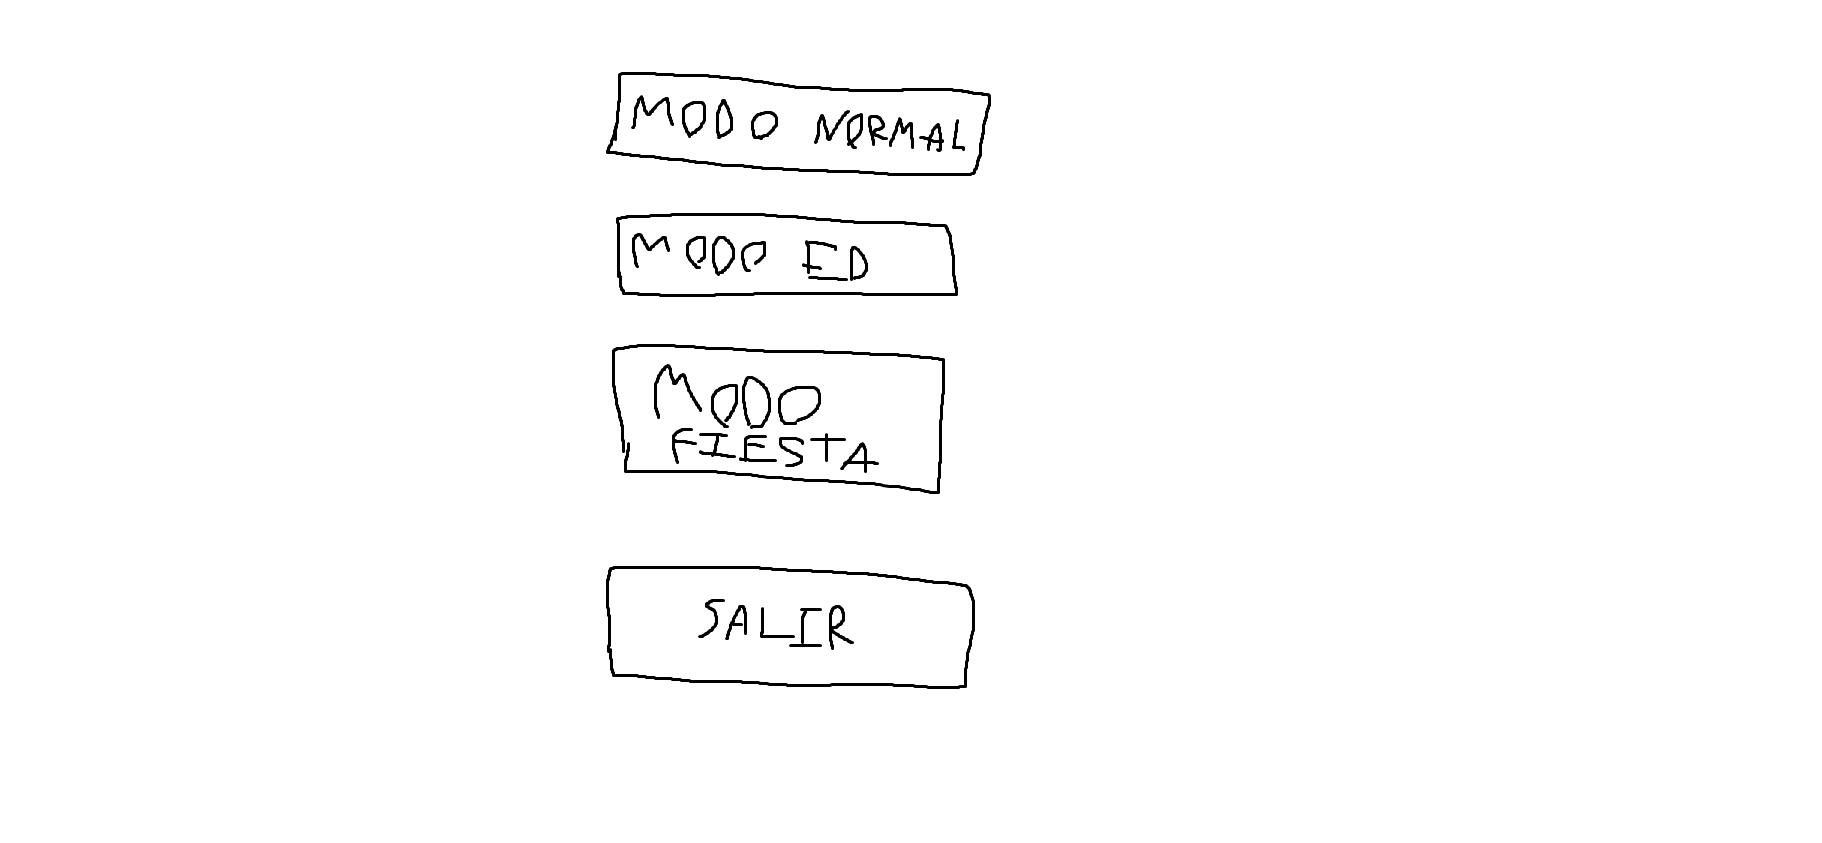 MODO NORMAL
MODO ED
MODO
FIESTA
SALIR